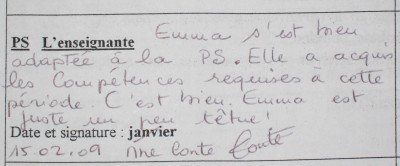 PS L'enseignante Emma s'est bien
adaptée à la PS. Elle a acquis
les compétences requises à cette
période. C'est bien. Emma est
juste un peu têtue!
Date et signature : janvier
15.02.09 Mme Conte Conte